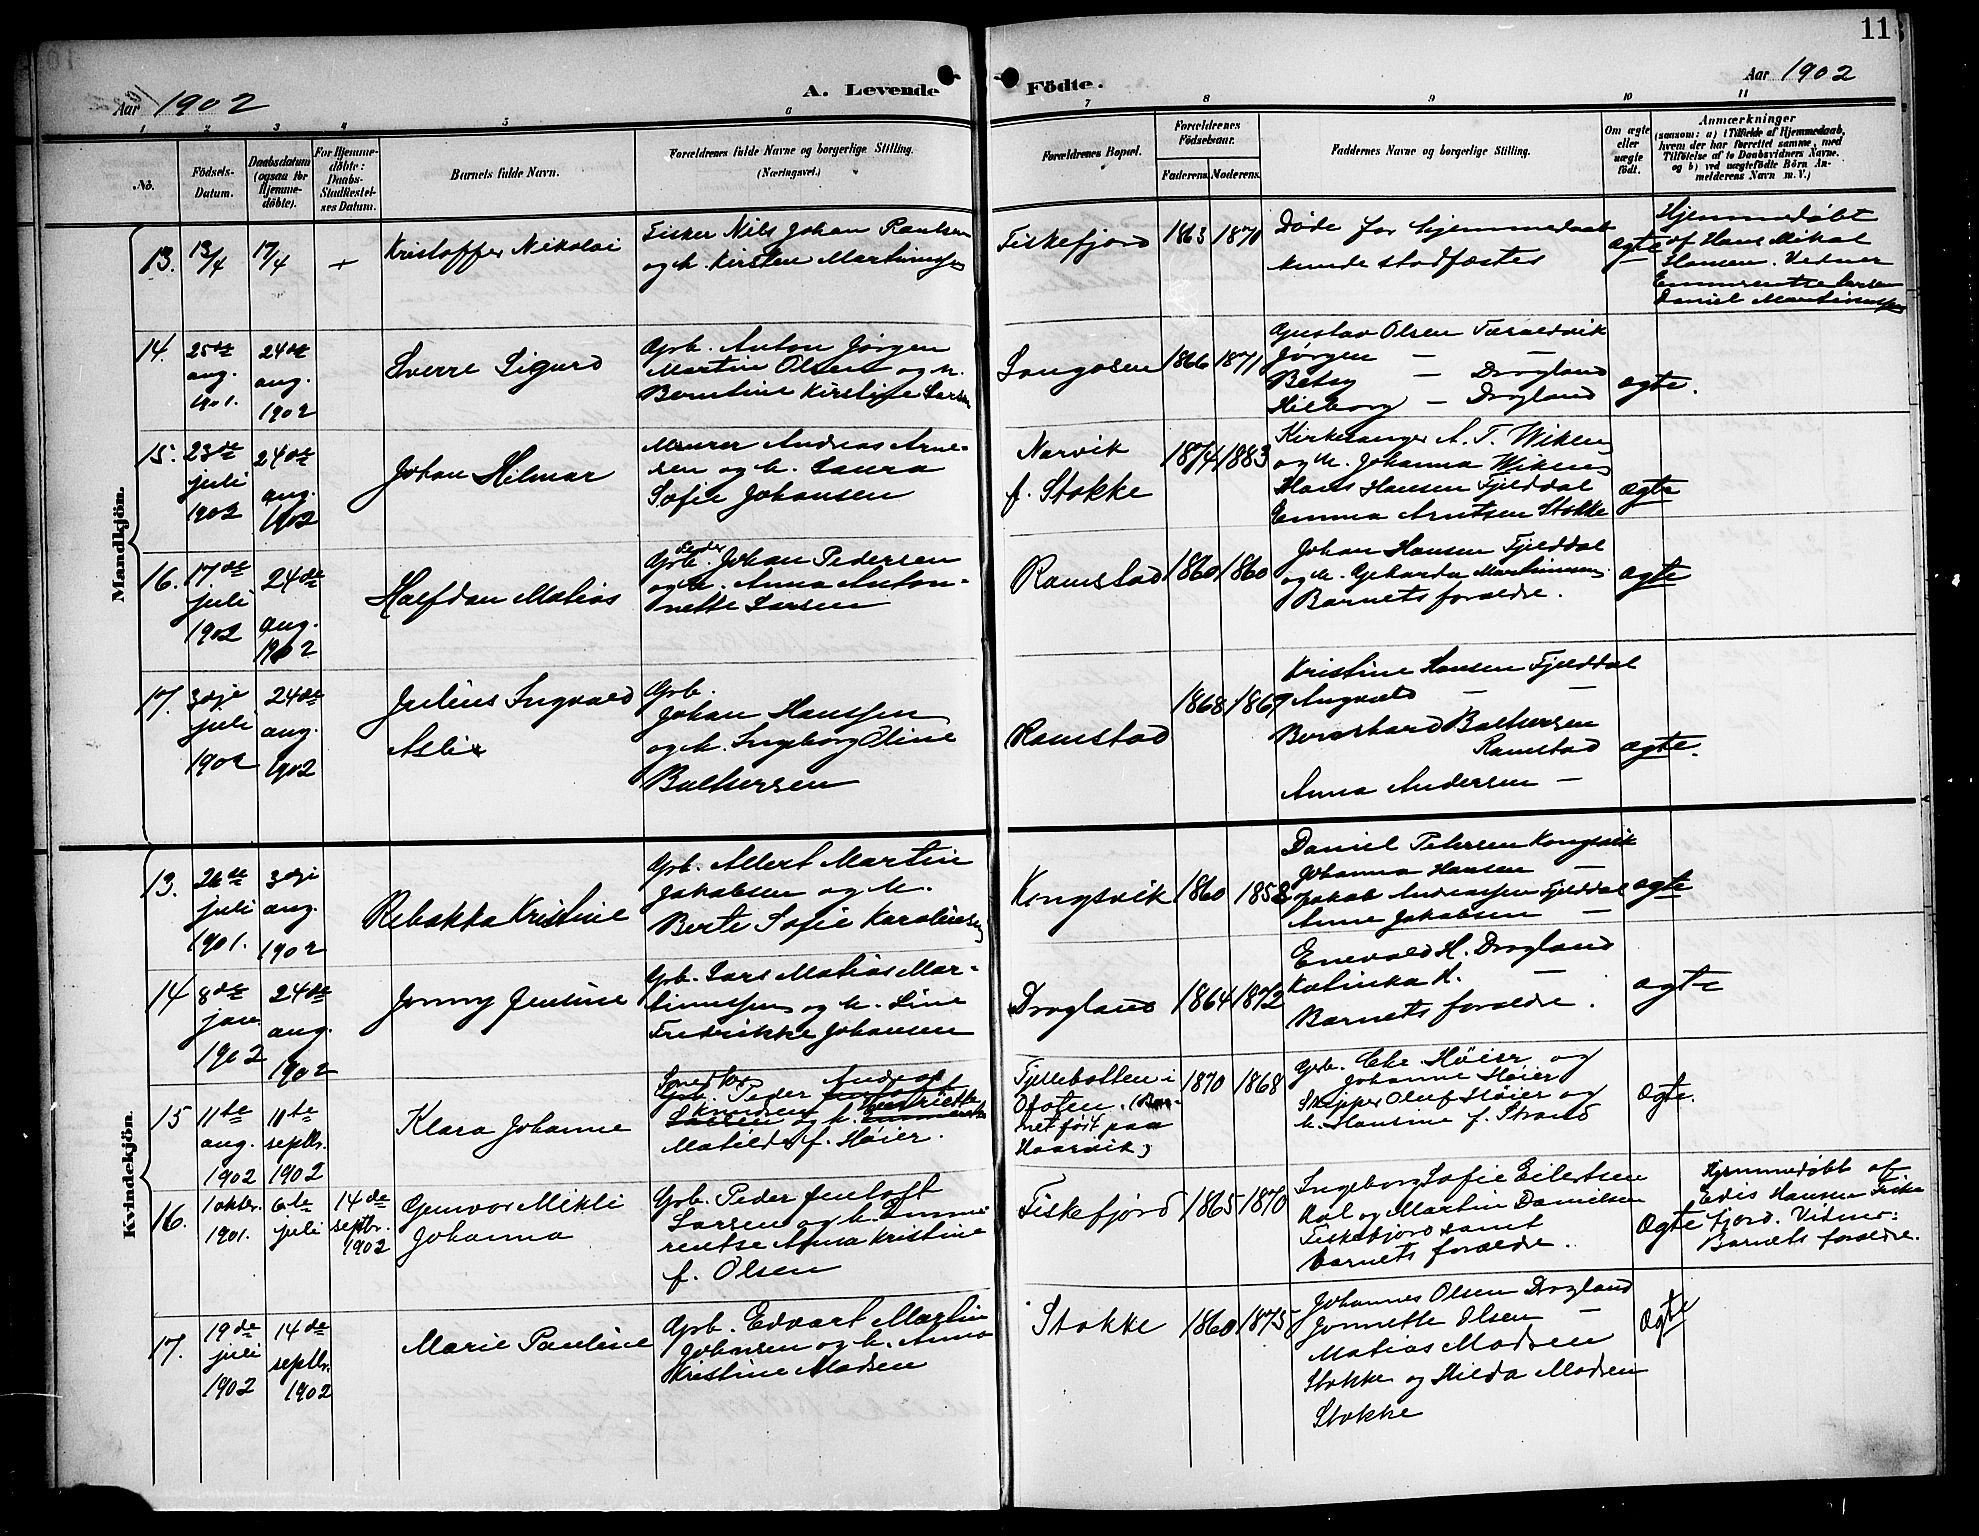 11
Aar 1902
A. Levende
Födte.
Aar 1902
1 2 3 4 5 6 7 8 9 10 11
No.
Födsels-
Datum.
Daabsdatum
(ogsaa for
Hjemme-
döbte).
For Hjemme-
döbte:
Daabs-
Stadfæstel-
ses Datum.
Barnets fulde Navn.
Forældrenes fulde Navne og borgerlige Stilling.
(Næringsvei.)
Forældrenes Bopæl.
Forældrenes
Födselsaar.
Faderens. Moderens.
Faddernes Navne og borgerlige Stilling.
Om ægte
eller
uægte
födt.
Anmærkninger
(saasom: a) i Tilfælde af Hjemmedaab,
hvem der har forrettet samme, med
Tilföielse af to Daabsvidners Navne,
og b) ved uægtefödte Börn An-
melderens Navn m. V.)
Mandkjön.
13.
13/4
17/4
+
Kristoffer Nikolai
Fisker Nils Johan Paulsen
og h. Kirsten Martinussen
Fiskefjord
1863
1870
Døde før hjemmedaab
kunde stadfæstes
ægte
Hjemmedøbt
af Hans Mikal
Hansen. Vidner
Emmrentse Larsen
Daniel Martinussen
14.
25de
aug.
1901.
24de
aug.
1902
Sverre Sigurd
Grb. Anton Jørgen
Martin Olsen og h.
Berntine Kirstine Larsen
Sangosen
1866
1871
Gustav Olsen Taraldvik
Jørgen — —
Betsy — Drogland
Hilborg — Drogland
ægte.
15.
23de
juli
1902
24de
aug.
1902
Johan Hilmar
Murer Andreas Arne-
sen og h. Laura
Sofie Johansen
Narvik
f. Stokke
1874
1883
Kirkesanger A. T. Wiken
og h. Johanna Wiken
Hans Hansen Fjelddal
Emma Arntsen Stokke
ægte
16.
17de
juli
1902
24de
aug.
1902
Halfdan Matias
Grb. Peder Johan Pedersen
og h. Anna Anton-
nette Larsen
Ramstad
1860
1860
Johan Hansen Fjelddal
og h. Geharda Martinussen
Barnets forældre.
ægte
17.
3dje
juli
1902
24de
aug.
1902
Julius Ingvald
Grb.
Johan Hanssen
og h. Ingeborg Oline
Balthersen
Ramstad
1868
1869
Kristine Hansen Fjelddal
Angvald — —
Bernhard Balthersen
Ramstad
Anna Andersen —
ægte.
Kvindekjön.
13.
26de
juli
1901.
3dje
aug.
1902
Rebekka Kristine
Grb. Albert Martin
Jakobsen og h.
Berte Sofie Karoliussen
Kongsvik
1860
1858
Daniel Petersen Kongsvik
Johanna Hansen —
Jakob Andreassen Fjelddal
Anne Jakobsen —
ægte
14
8de
jan
1902
24de
aug.
1902
Jenny Jentine
Grb. Lars Matias Mar-
tinussen og h. Line
Fredrikke Johansen
Drogland
1864
1872
Enevald H. Drogland
Katinka H. —
Barnets forældre.
ægte
15
11te
aug.
1902
10te
septbr.
1902
Klara Johanne
Grb. Peder Andreas
Knudsen og h. Henriette
Matilde f. Høier.
Fjellbotten i
Ofoten. (Bar-
net født paa
Haarvik)
1870
1868
Grb. Eke Høier og
Johanne Høier
Skipper Oluf Høier og
h. Hansine f. Strand
ægte.
16.
1 oktbr.
1901.
6te
juli
14de
septbr.
1902
Gunvor Mikli
Johanna
Grb. Peder Jentoft
Larsen og h. Emme-
rentse Anna Kristine
f. Olsen
Fiskefjord
1865
1870
Ingeborg Sofie Eilertsen
Aal og Martin Danielsen
Fiskefjord samt
Barnets forældre.
ægte
Hjemmedøbt af
Edis Hansen Fiske
fjord. Vidner:
Barnets forældre.
17.
19de
juli
1902
14de
septbr.
1902
Marie Pauline
Grb. Edvart Martin
Johnsen og h. Anna
Kristine Madsen
Stokke
1860
1875
Johannes Olsen Drogland
Jonnette Olsen —
Matias Madsen
Stokke og Hilda Madsen
Stokke
ægte